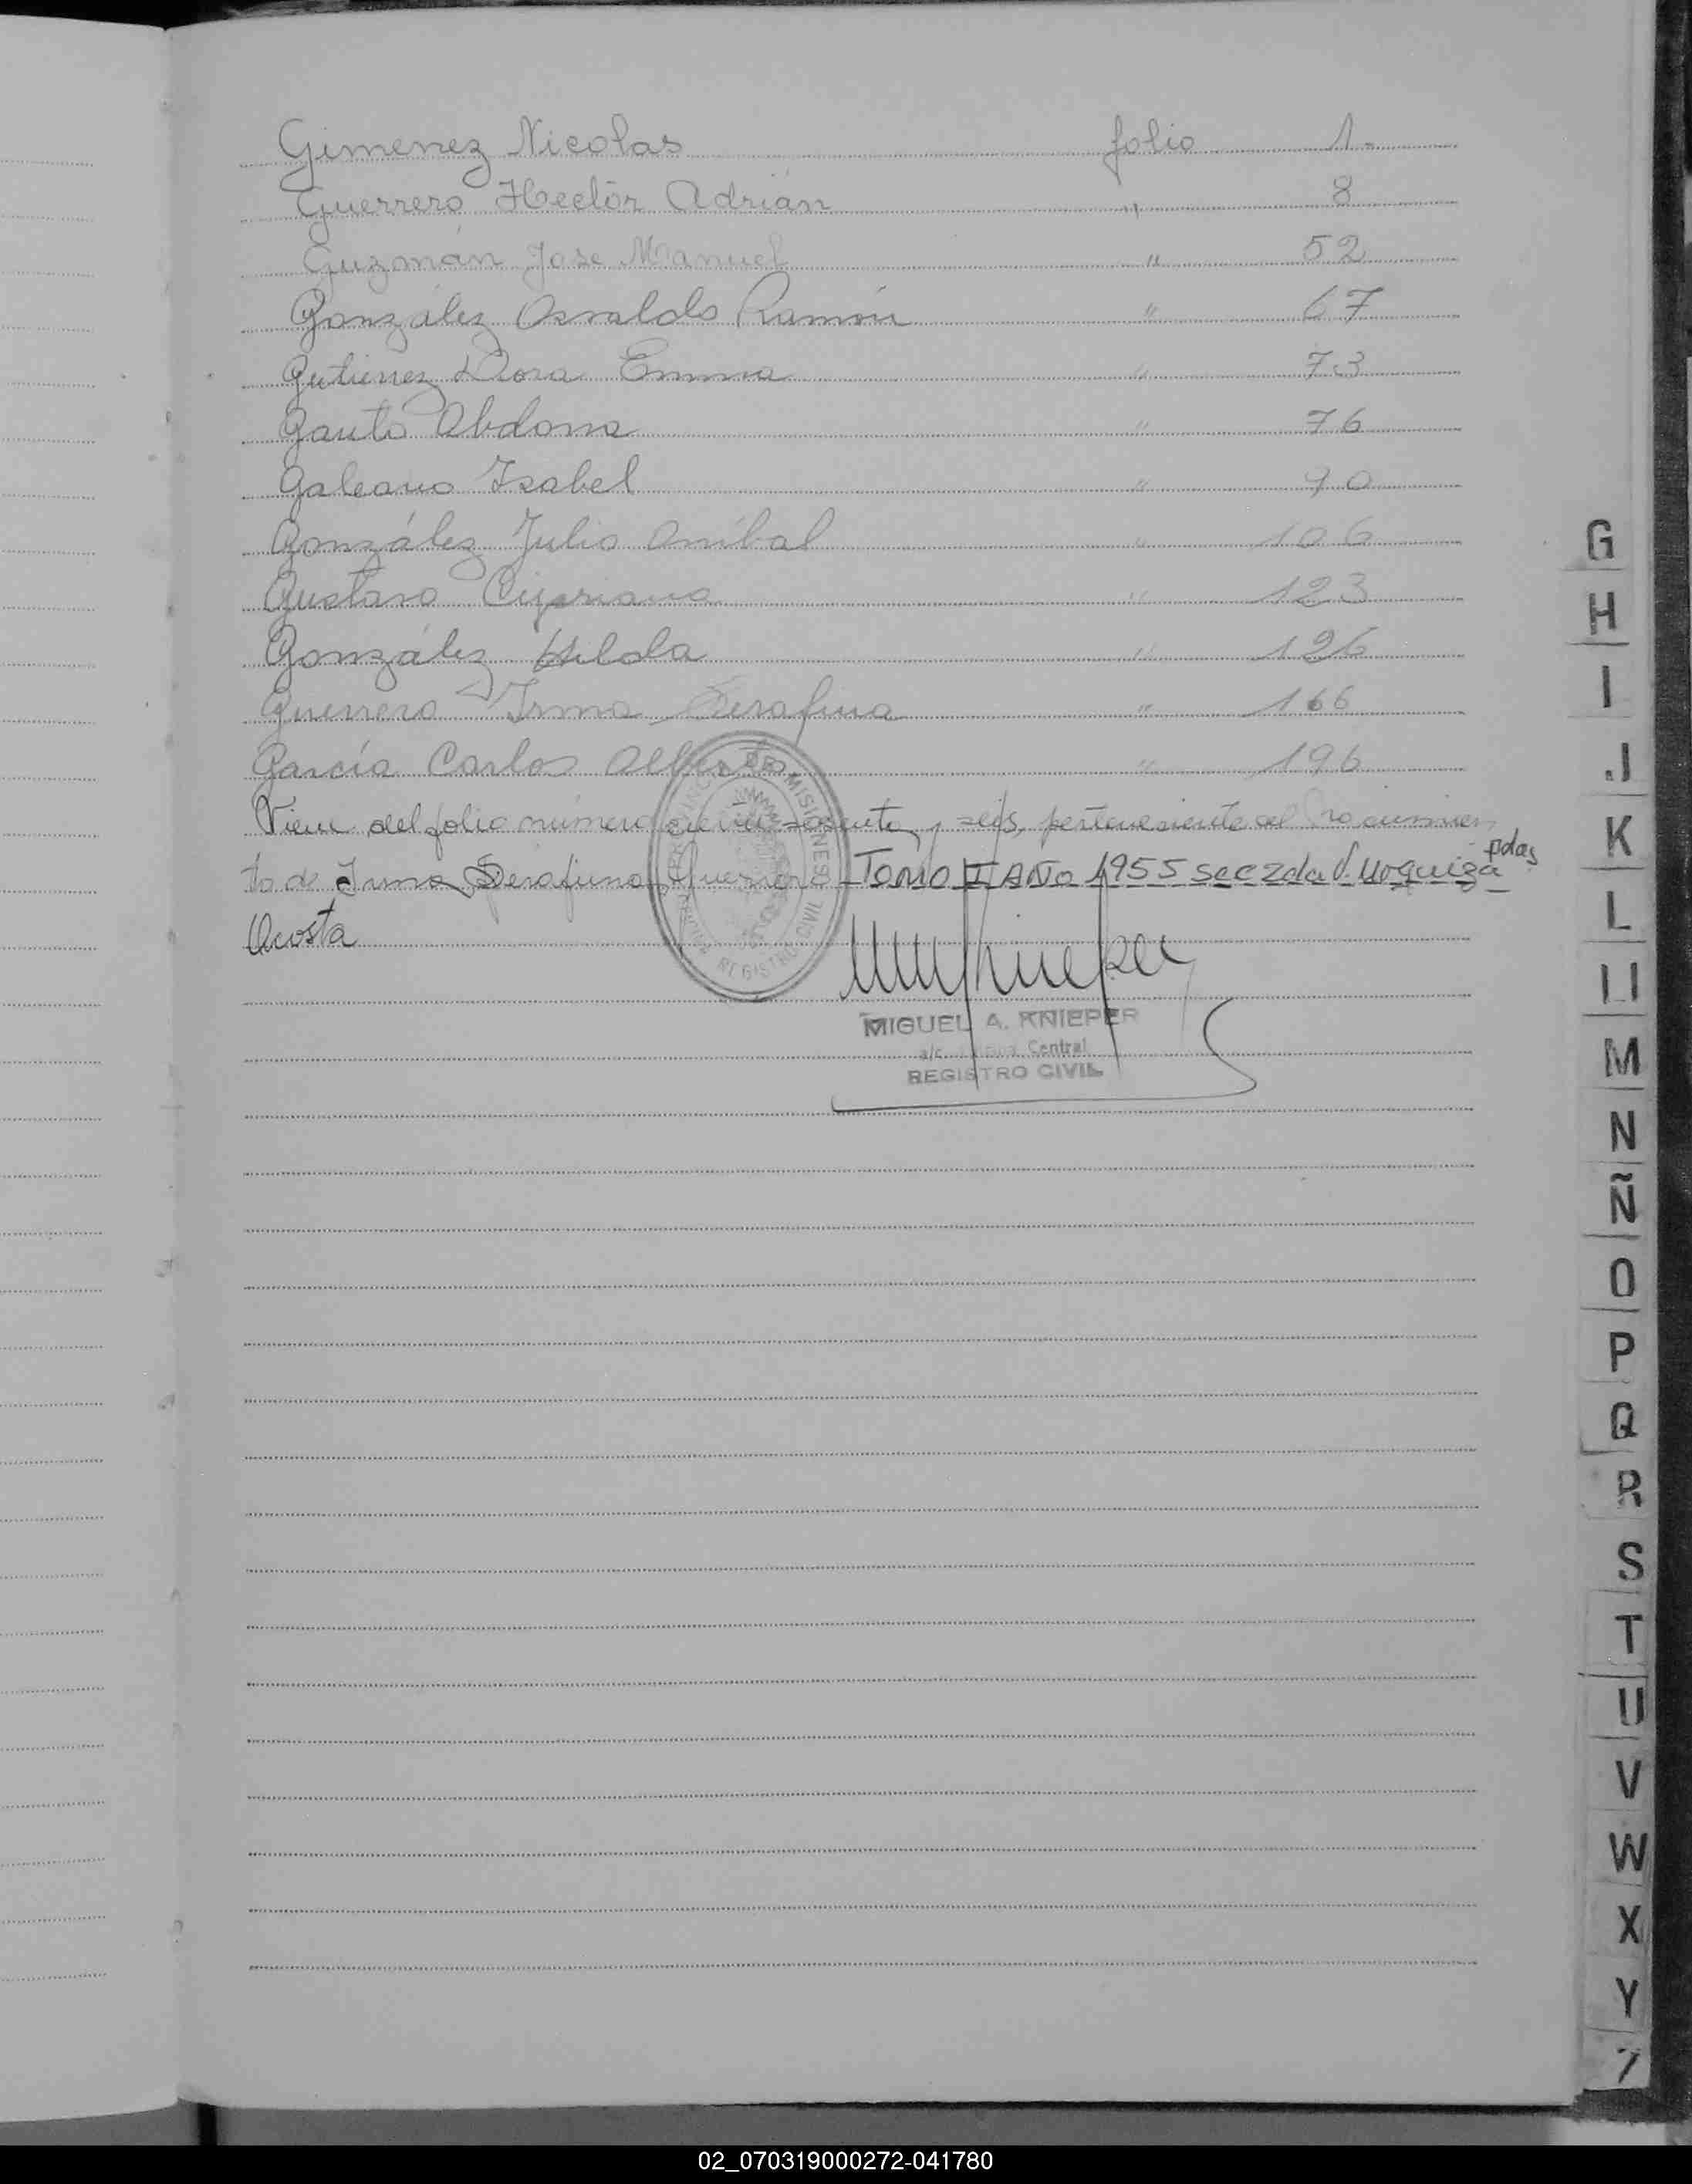 Gimenez Nicolas folio 1.-
Guerrero Hector Adrián " 8
Guzmán Jose Manuel " 52
González Osvaldo Ramón " 67
Gutierrez Dora Emma " 73
Gauto Abdona " 76
Galeano Isabel " 90
González Julio Anibal " 106
Gustavo Cipriano " 123
González Hilda " 126
Guerrero Irma Serafina " 166
García Carlos Alberto " 196
Viene del folio número ciento sesenta y seis, perteneciente al
to de Irma Serafina Guerrero TOMO II AÑO 1955 Sec 2da V. Urquiza Pdas
Acosta
PROVINCIA DE MISIONES
REGISTRO CIVIL
MIGUEL A. KNIEPER
a/c. Central
REGISTRO CIVIL
G
H
I
J
K
L
Ll
M
N
Ñ
O
P
Q
R
S
T
U
V
W
X
Y
Z
02_070319000272-041780